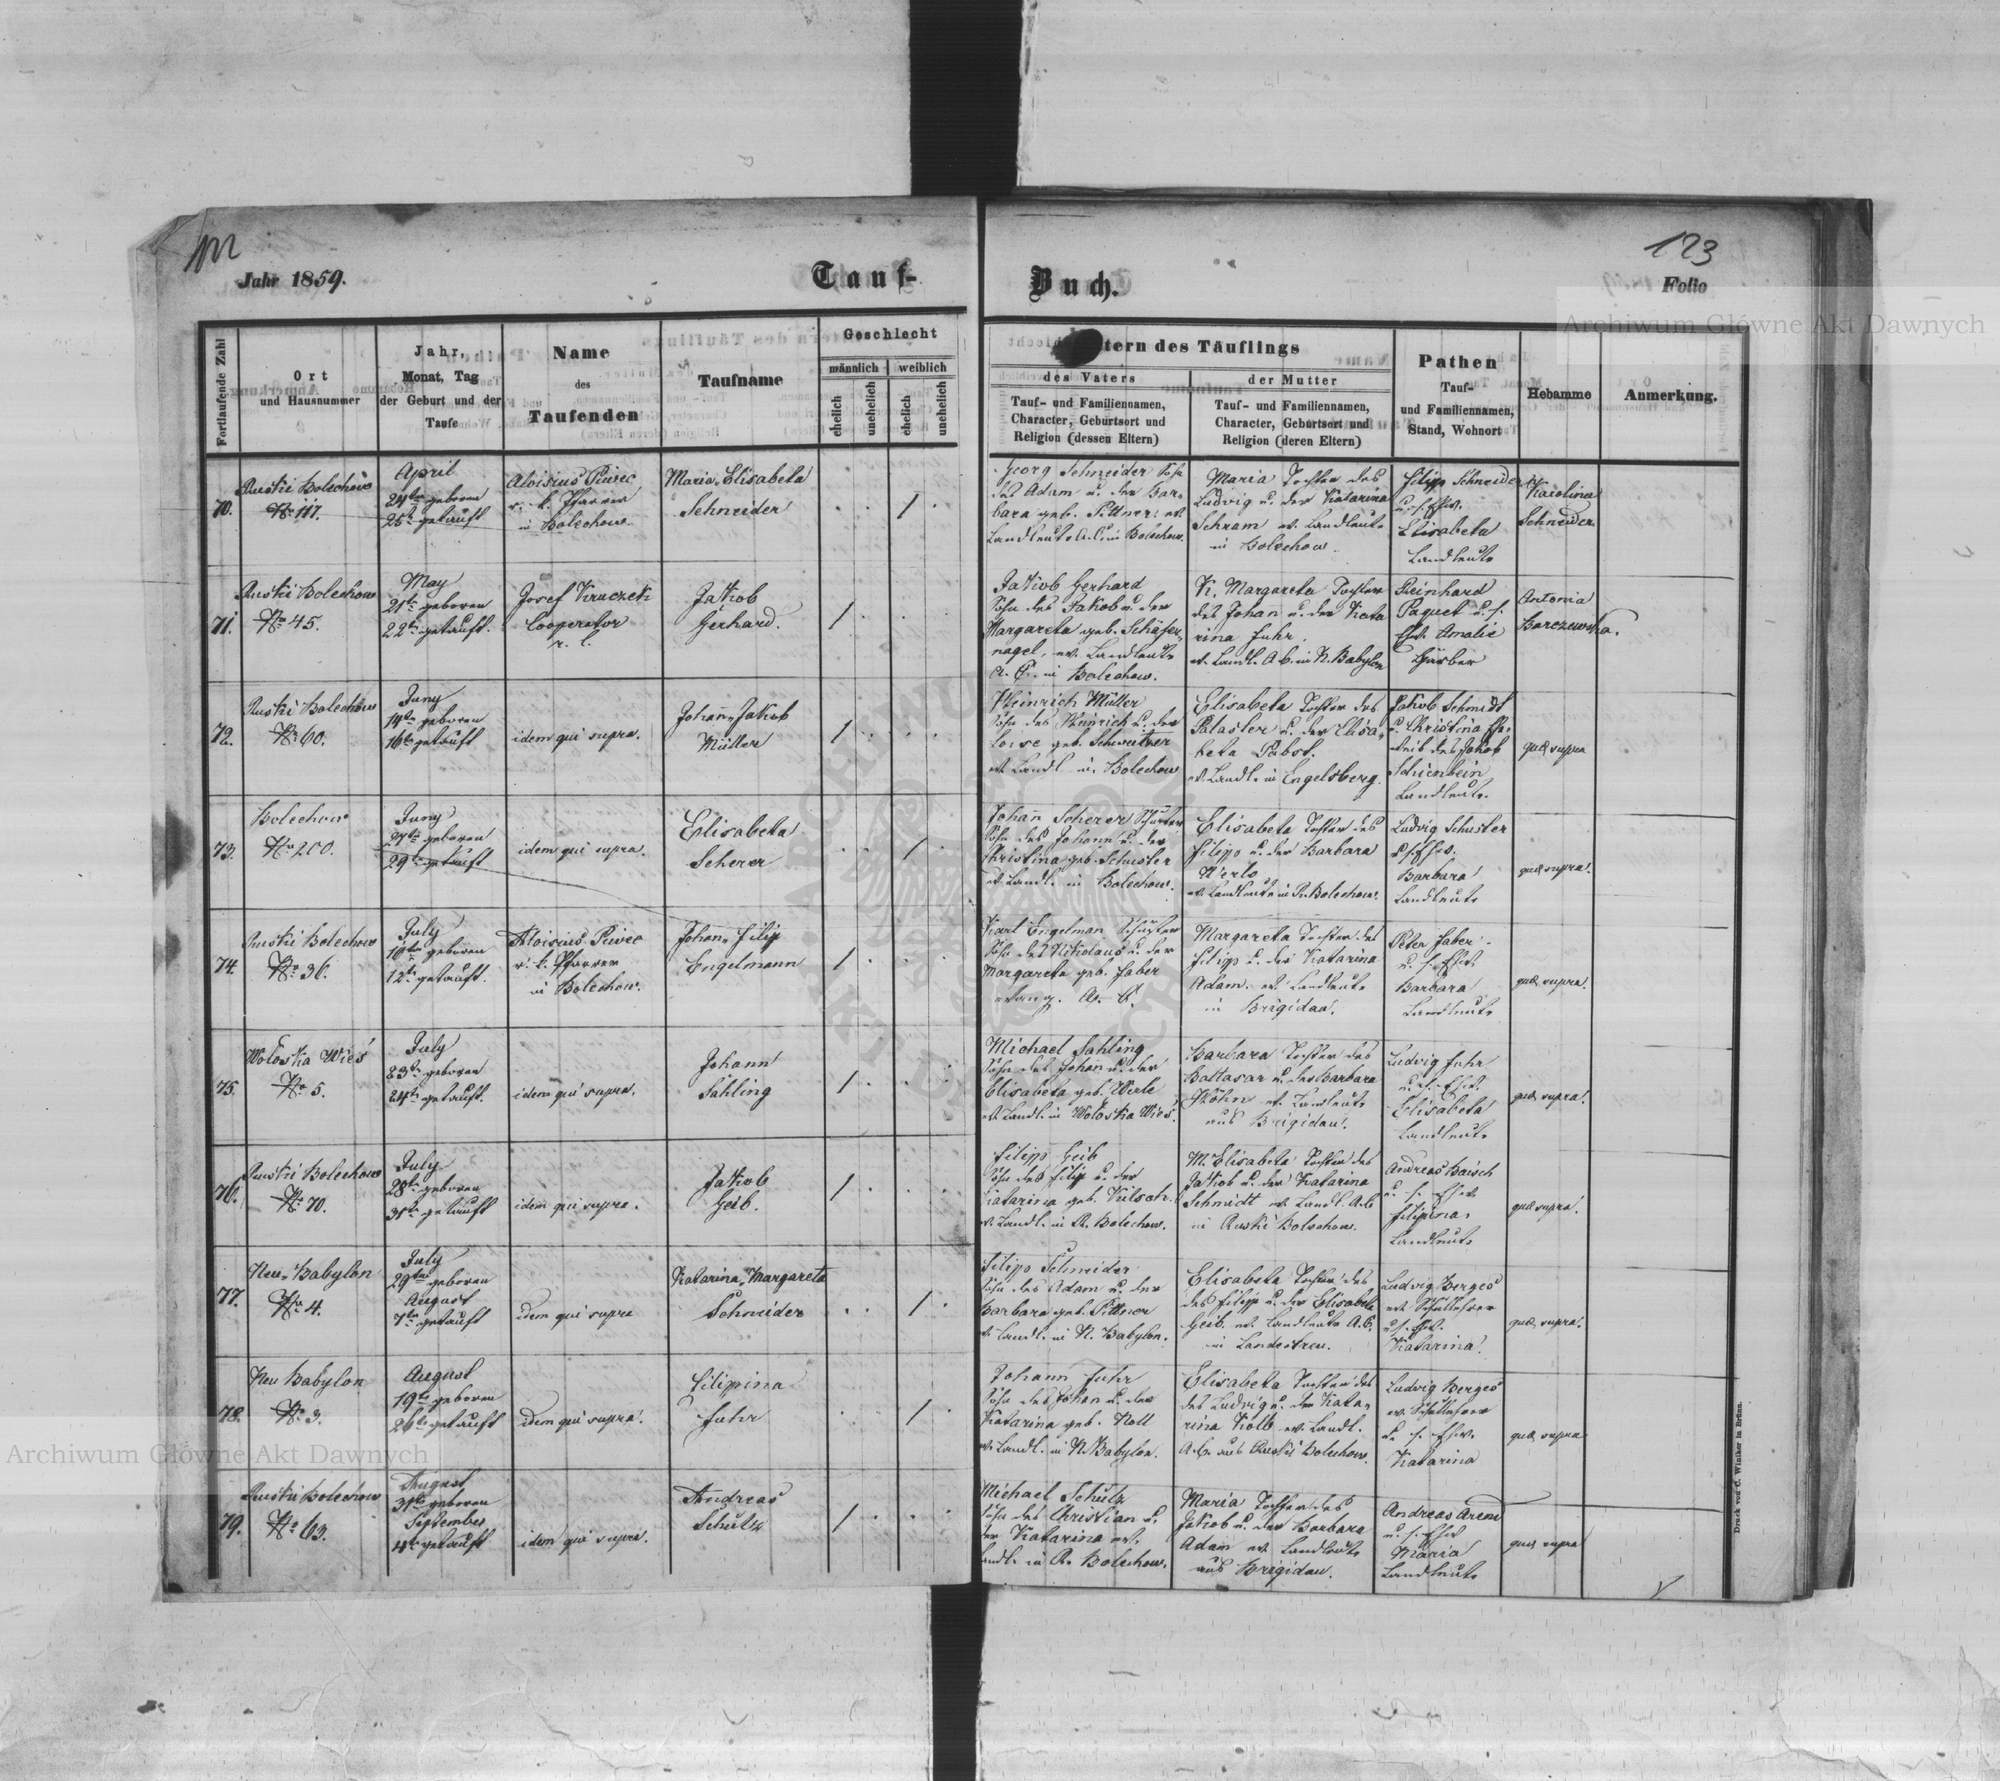 122
Jahr 1859.
Tauf-
Buch.
123
Folio
Archiwum Główne Akt Dawnych
Fortlaufende Zahl
Ort
und Hausnummer
Jahr,
Monat, Tag
der Geburt und der
Taufe
Name
des
Taufenden
Taufname
Geschlecht
männlich
weiblich
ehelich
unehelich
ehelich
unehelich
tern des Täuflings
des Vaters
Tauf- und Familiennamen,
Character, Geburtsort und
Religion (dessen Eltern)
der Mutter
Tauf- und Familiennamen,
Character, Geburtsort und
Religion (deren Eltern)
Pathen
Tauf-
und Familiennamen,
Stand, Wohnort
Hebamme
Anmerkung.
70.
Ruski Bolechów
No 117.
April
24te geboren
25te getauft
Aloisius Piwec
r. l. Pfarrer
in Bolechow
Maria Elisabeta
Schneider
Georg Schneider Sohn
des Adam u. der Bar-
bara geb. Pittner ev.
Landleute A.C. in Bolechow.
Maria Tochter des
Ludwig u. der Katarina
Schram ev. Landleute
in Bolechow.
Filipp Schneider
u. s. Ehew.
Elisabeta
Landleute
Karolina
Schneider
71.
Ruski Bolechow
No 45.
May
21te geboren
22te getauft.
Josef Kruczek
Cooperator
r. l.
Jakob
Gerhard.
Jakob Gerhard
Sohn des Jakob u. der
Margareta geb. Schäfer-
nagel, ev. Landleute
A. C. in Bolechow.
K. Margareta Tochter
des Johan u. der Kata
rina Fuhr.
ev. Landl. A.C. in N. Babylon
Reinhard
Paquet u. s.
Ehew. Amalie
Gärber
Antonia
Barczewska.
72.
Ruski Bolechów
No 60.
Juny
14te geboren
16te getauft
idem qui supra.
Johann Jakob
Müller
Heinrich Müller
Sohn des Heinrich u. der
Loise geb. Schweitzer
ev. Landl. in Bolechow
Elisabeta Tochter des
u. der Elisa-
beta Pabst.
ev. Landl. in Engelsberg.
Jakob Schmidt
u. Christina Ehe-
weib des Jakob
Schienbein
Landleute.
quæ supra
73.
Bolechow
No 200.
Juny
27te geboren
29te getauft
idem qui supra.
Elisabeta
Scherer
Johann Scherer
Sohn des Johann u. der
Christina geb. Schuster
ev. Landl. in Bolechow.
Elisabeta Tochter des
Filipp u. der Barbara
Werlo
ev. Landleute in R. Bolechow.
Ludwig Schuster
u. s. Ehew.
Barbara
Landleute
quæ supra.
74.
Ruski Bolechow
No 36.
July
10te geboren
12te getauft.
Aloisius Piwec
r. l. Pfarrer
in Bolechow.
Johan Filip
Engelmann
Karl Engelman Schuster
Sohn des Nikolaus u. der
Margareta geb. Faber
evang. A. C.
Margareta Tochter des
Filipp u. der Katarina
Adam. ev. Landleute
in Brigidau.
Peter Faber
u. s. Ehew.
Barbara
Landleute
quæ supra.
75.
Wołoska Wieś
No 5.
July
23te geboren
24te getauft.
idem qui supra.
Johann
Sahling
Michael Sahling
Sohn des Johan u. der
Elisabeta geb. Werle
ev. Landl. in Wołoska Wieś.
Barbara Tochter des
Baltasar u. der Barbara
Köhn ev. Landleute
aus Brigidau.
Ludwig Fuhr
u. s. Ehew.
Elisabeta
Landleute
quæ supra.
76.
Ruski Bolechow
No 70.
July
28te geboren
31te getauft
idem qui supra.
Jakob
Geib.
Filipp Geib
Sohn des Filip u. der
Katarina geb. Kutsch.
ev. Landl. in R. Bolechow.
M. Elisabeta Tochter des
Jakob u. der Katarina
Schmidt ev. Landl. A.C
in Ruski Bolechow.
Andreas Baisch
u. s. Ehew
Filipina.
Landleute
quæ supra.
77.
Neu-Babylon
No 4.
July
29te geboren
August
7te getauft
idem qui supra
Katarina Margareta
Schneider
Filipp Schneider
Sohn des Adam u. der
Barbara geb. Pittner
ev. Landl. in N. Babylon.
Elisabeta Tochter des
des Filipp u. der Elisabeta
Geib. ev. Landleute A.C.
in Landestreu.
Ludwig Berges
ev. Schullehrer
u. s. Ehew.
Katarina.
quæ supra.
78.
Neu Babylon
No 3.
August
19te geboren
26te getauft
idem qui supra.
Filipina
Fuhr
Johann Fuhr
Sohn des Johan u. der
Katarina geb. Noll
ev. Landl. in N. Babylon.
Elisabeta Tochter des
des Ludwig u. der Kata-
rina Kolb ev. Landl.
A.C. aus Ruski Bolechow.
Ludwig Berges
ev. Schullehrer
u. s. Ehew.
Katarina
quæ supra
79.
Ruski Bolechow
No 63.
August
31te geboren
September
4te getauft
idem qui supra.
Andreas
Schulz
Michael Schulz
Sohn des Christian u.
der Katarina ev.
Landl. in R. Bolechow.
Maria Tochter des
Jakob u. der Barbara
Adam ev. Landleute
aus Brigidau.
Andreas Arend
u. s. Ehew
Maria
Landleute
quæ supra
Druck von C. Winiker in Brünn.
Archiwum Główne Akt Dawnych